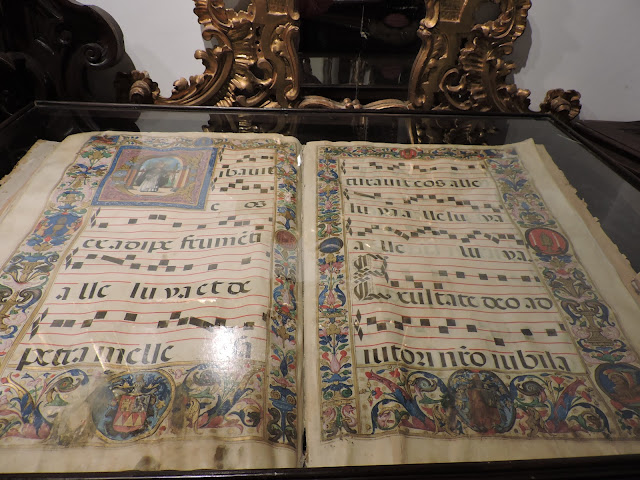 ibavit
e os
ex adipe frumēti
a lle lu ya et de
petra melle
turavit eos alle
lu ya a lle lu ya
a lle lu ya
Exultate deo ad
iutori nr̄o iubila